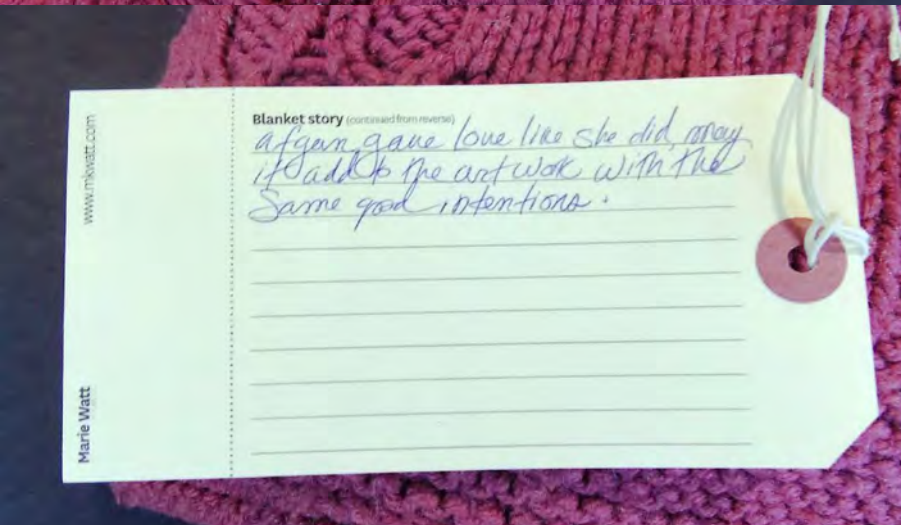 www.mkwatt.com
Marie Watt
Blanket story (continued from reverse)
afgan gave love like she did, may
it add to the art work with the
Same good intentions.